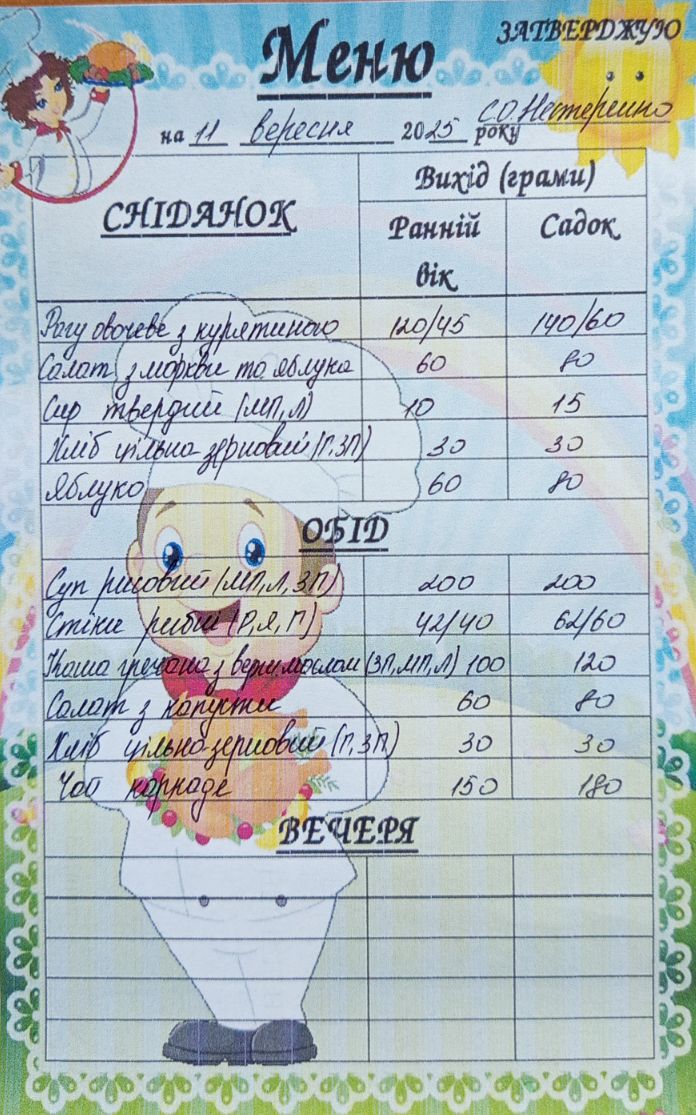 ЗАТВЕРДЖУЮ
Меню
С.О. Нестеренко
на 11 вересня 2025 року
СНІДАНОК
Вихід (грами)
Ранній вік
Садок
Рагу овочеве з курятиною 120/45 140/60
Салат з моркви та яблука 60 80
Сир твердий (МП,Л) 10 15
Хліб цільно зерновий (П,ЗП) 30 30
Яблуко 60 80
ОБІД
Суп рисовий (МП,Л,ЗП) 200 200
Стіки рибні (Р,Я,П) 42/40 62/60
Каша гречана з верш.маслом (ЗП,МП,Л) 100 120
Салат з капусти 60 80
Хліб цільно-зерновий (П,ЗП) 30 30
Чай каркаде 150 180
ВЕЧЕРЯ